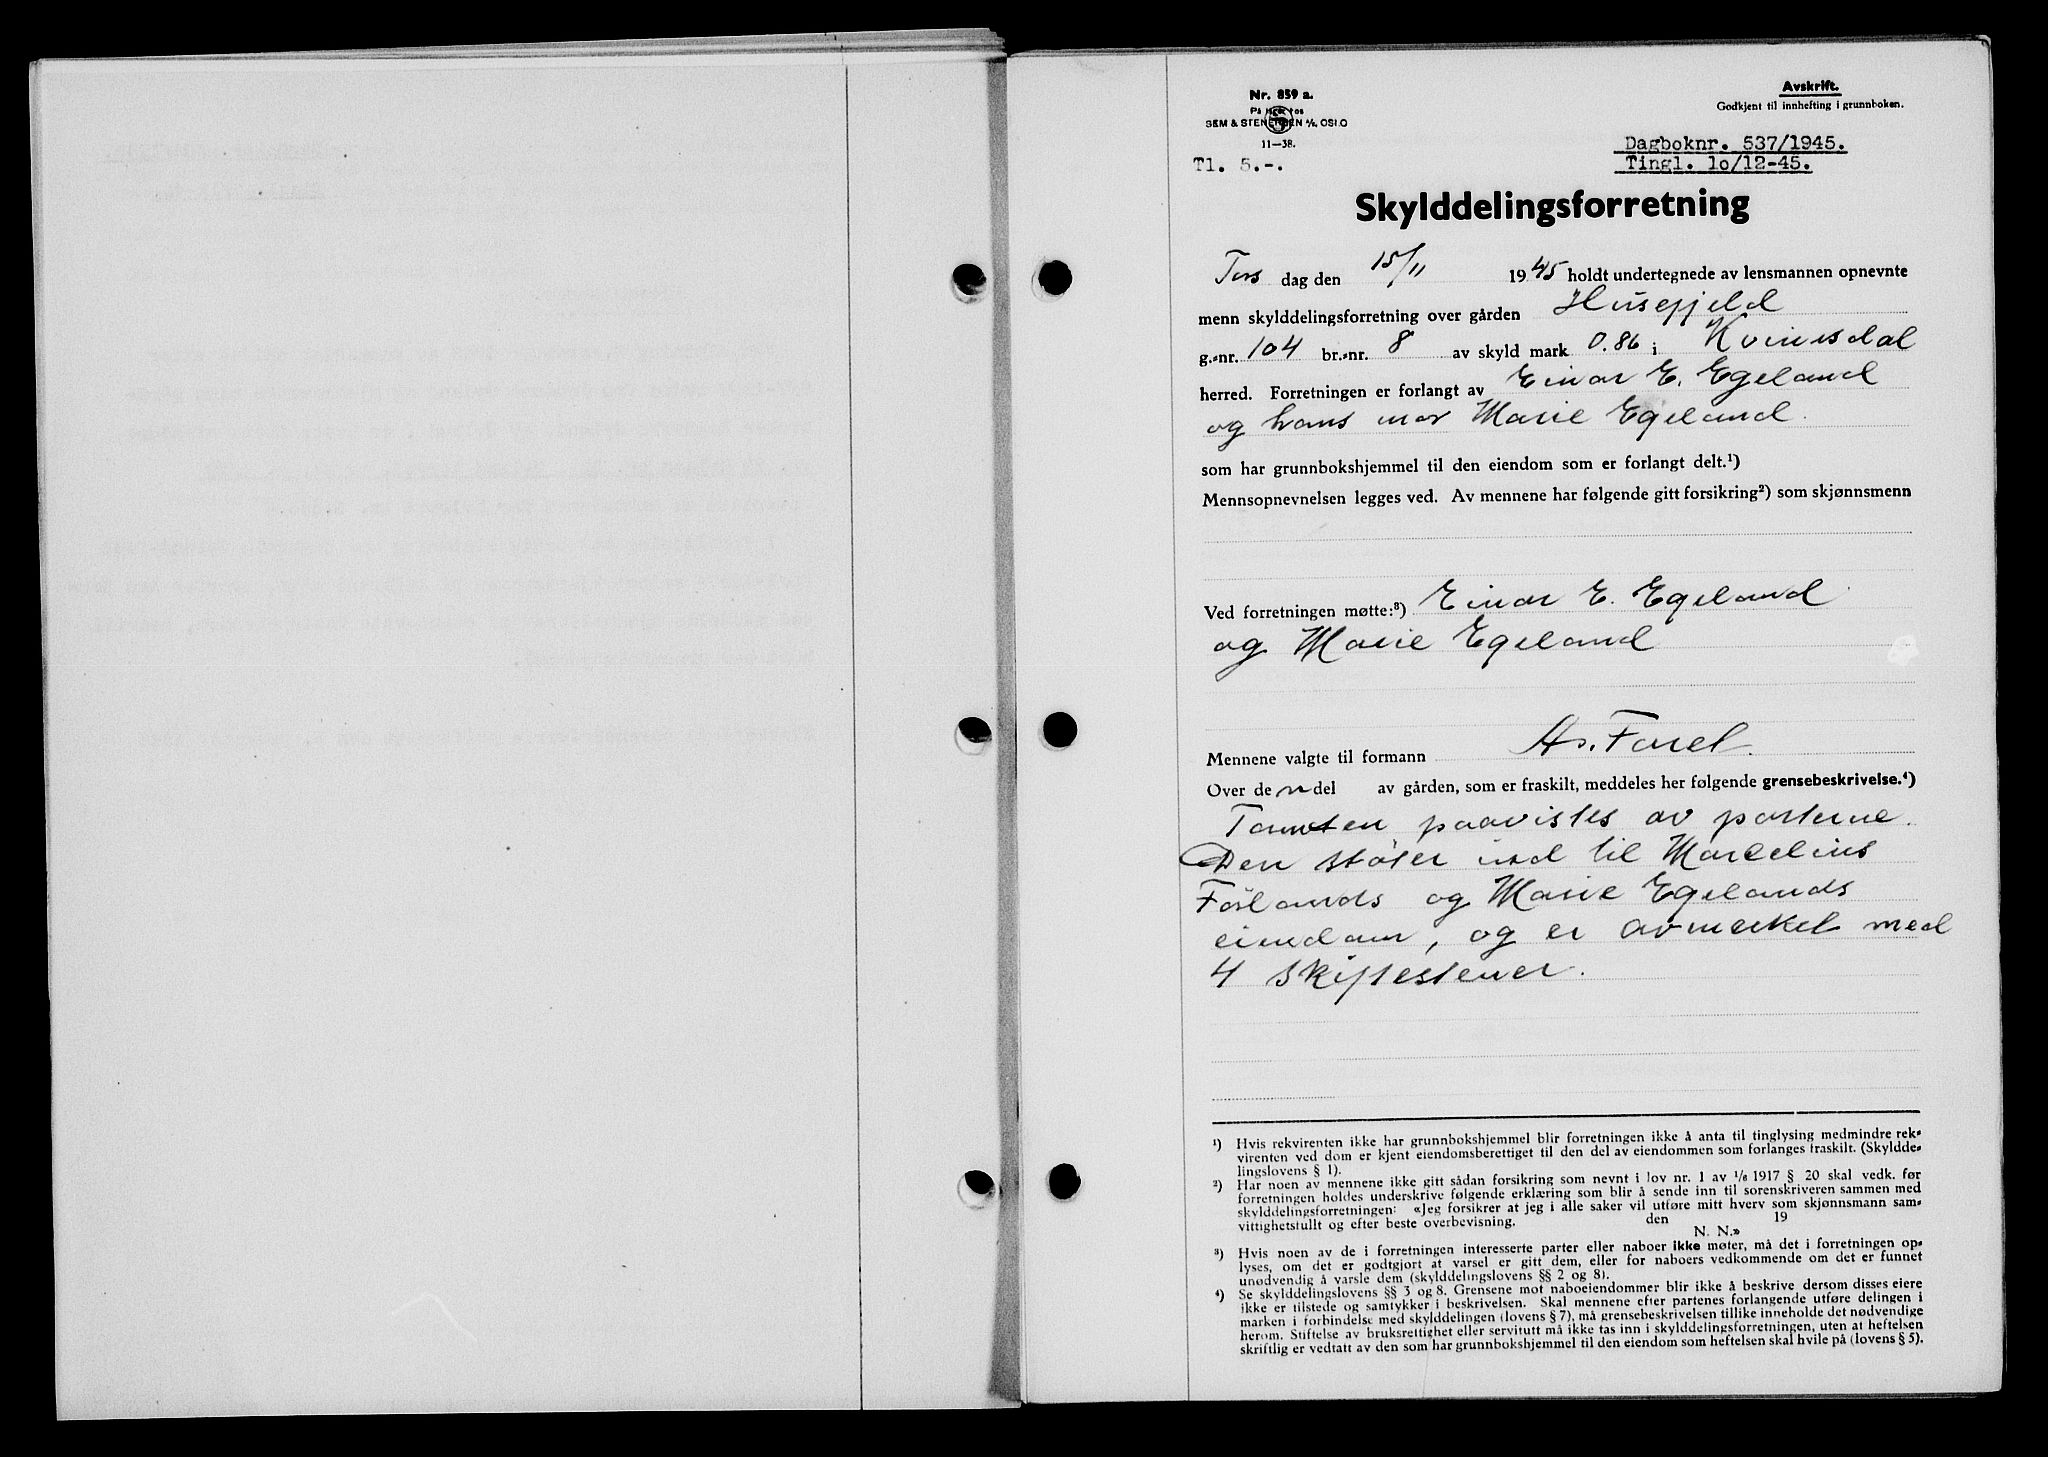 Nr. 859 a.
På lager hos
SEM & STENERSEN A/S, OSLO
11—38.
Avskrift.
Godkjent til innhefting i grunnboken.
Tl. 5.-.
Dagboknr. 537/1945.
Tingl. 1o/12-45.
Skylddelingsforretning
Tors dag den 15/11 1945 holdt undertegnede av lensmannen opnevnte
menn skylddelingsforretning over gården Husefjeld
g.-nr. 104 br.-nr. 8 av skyld mark 0.86 i Kvinesdal
herred. Forretningen er forlangt av Einar E. Egeland
og hans mor Marie Egeland.
som har grunnbokshjemmel til den eiendom som er forlangt delt.¹)
Mennsopnevnelsen legges ved. Av mennene har følgende gitt forsikring²) som skjønnsmenn
Ved forretningen møtte:³) Einar E. Egeland
og Marie Egeland
Mennene valgte til formann As. Faret.
Over de n del av gården, som er fraskilt, meddeles her følgende grensebeskrivelse.⁴)
Tomten paavistes av parterne.
Den støter ind til Marcelius
Förlands og Marie Egelands
eiendom, og er avmerket med
4 skiftestener.
¹) Hvis rekvirenten ikke har grunnbokshjemmel blir forretningen ikke å anta til tinglysing medmindre rek-
virenten ved dom er kjent eiendomsberettiget til den del av eiendommen som forlanges fraskilt. (Skyldde-
lingslovens § 1).
²) Har noen av mennene ikke gitt sådan forsikring som nevnt i lov nr. 1 av 1/8 1917 § 20 skal vedk. før
forretningen holdes underskrive følgende erklæring som blir å sende inn til sorenskriveren sammen med
skylddelingsforretningen: «Jeg forsikrer at jeg i alle saker vil utføre mitt hverv som skjønnsmann sam-
vittighetsfullt og efter beste overbevisning. den 19
N. N.»
³) Hvis noen av de i forretningen interesserte parter eller naboer ikke møter, må det i forretningen op-
lyses, om det er godtgjort at varsel er gitt dem, eller for naboers vedkommende om det er funnet
unødvendig å varsle dem (skylddelingslovens §§ 2 og 8).
⁴) Se skylddelingslovens §§ 3 og 8. Grensene mot naboeiendommer blir ikke å beskrive dersom disses eiere
ikke er tilstede og samtykker i beskrivelsen. Skal mennene efter partenes forlangende utføre delingen i
marken i forbindelse med skylddelingen (lovens § 7), må grensebeskrivelsen tillike inneholde det nødvendige
herom. Stiftelse av bruksrettighet eller servitutt må ikke tas inn i skylddelingsforretningen, uten at heftelsen
skriftlig er vedtatt av den som har grunnbokshjemmel til den eiendom som heftelsen skal hvile på (lovens § 5).